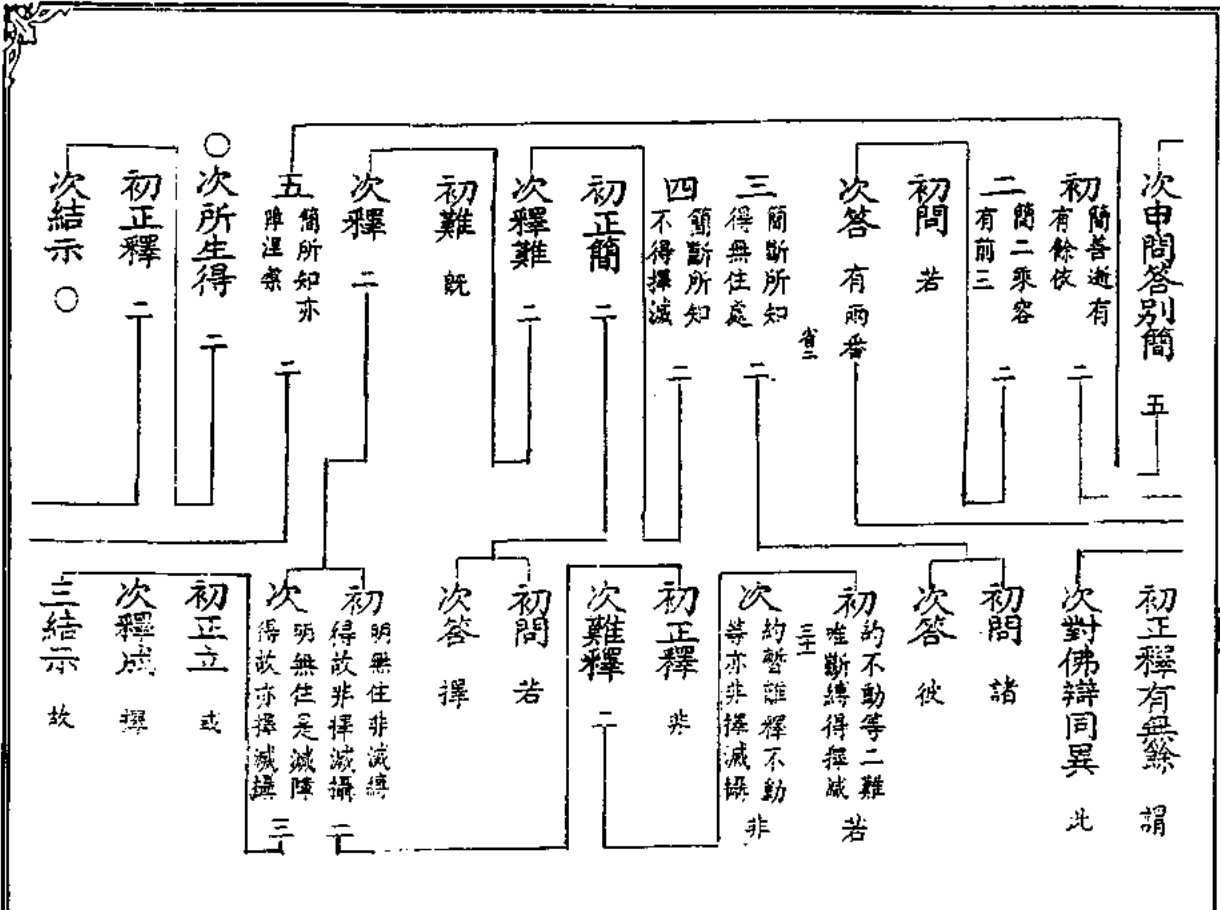 次申問答別簡 五
初 簡善逝有有餘依 二
二 簡二乘容有前三 二
初問 若
次答 有兩番
省二
三 簡斷所知得無住處 二
四 簡斷所知不得擇滅 二
初正簡 二
次釋難 二
初難 既
次釋 二
五 簡所知亦障涅槃 二
○次所生得 二
初正釋 二
次結示 ○
初正釋有無餘 謂
次對佛辯同異 此
初問 諸
次答 彼
初 約不動等二難唯斷縛得擇滅 若
三十一
次 約暫離釋不動等亦非擇滅攝 非
初正釋 非
次難釋 二
初問 若
次答 擇
初 明無住非滅縛得故非擇滅攝 二
次 明無住是滅障得故亦擇滅攝 三
初正立 或
次釋成 擇
三結示 故